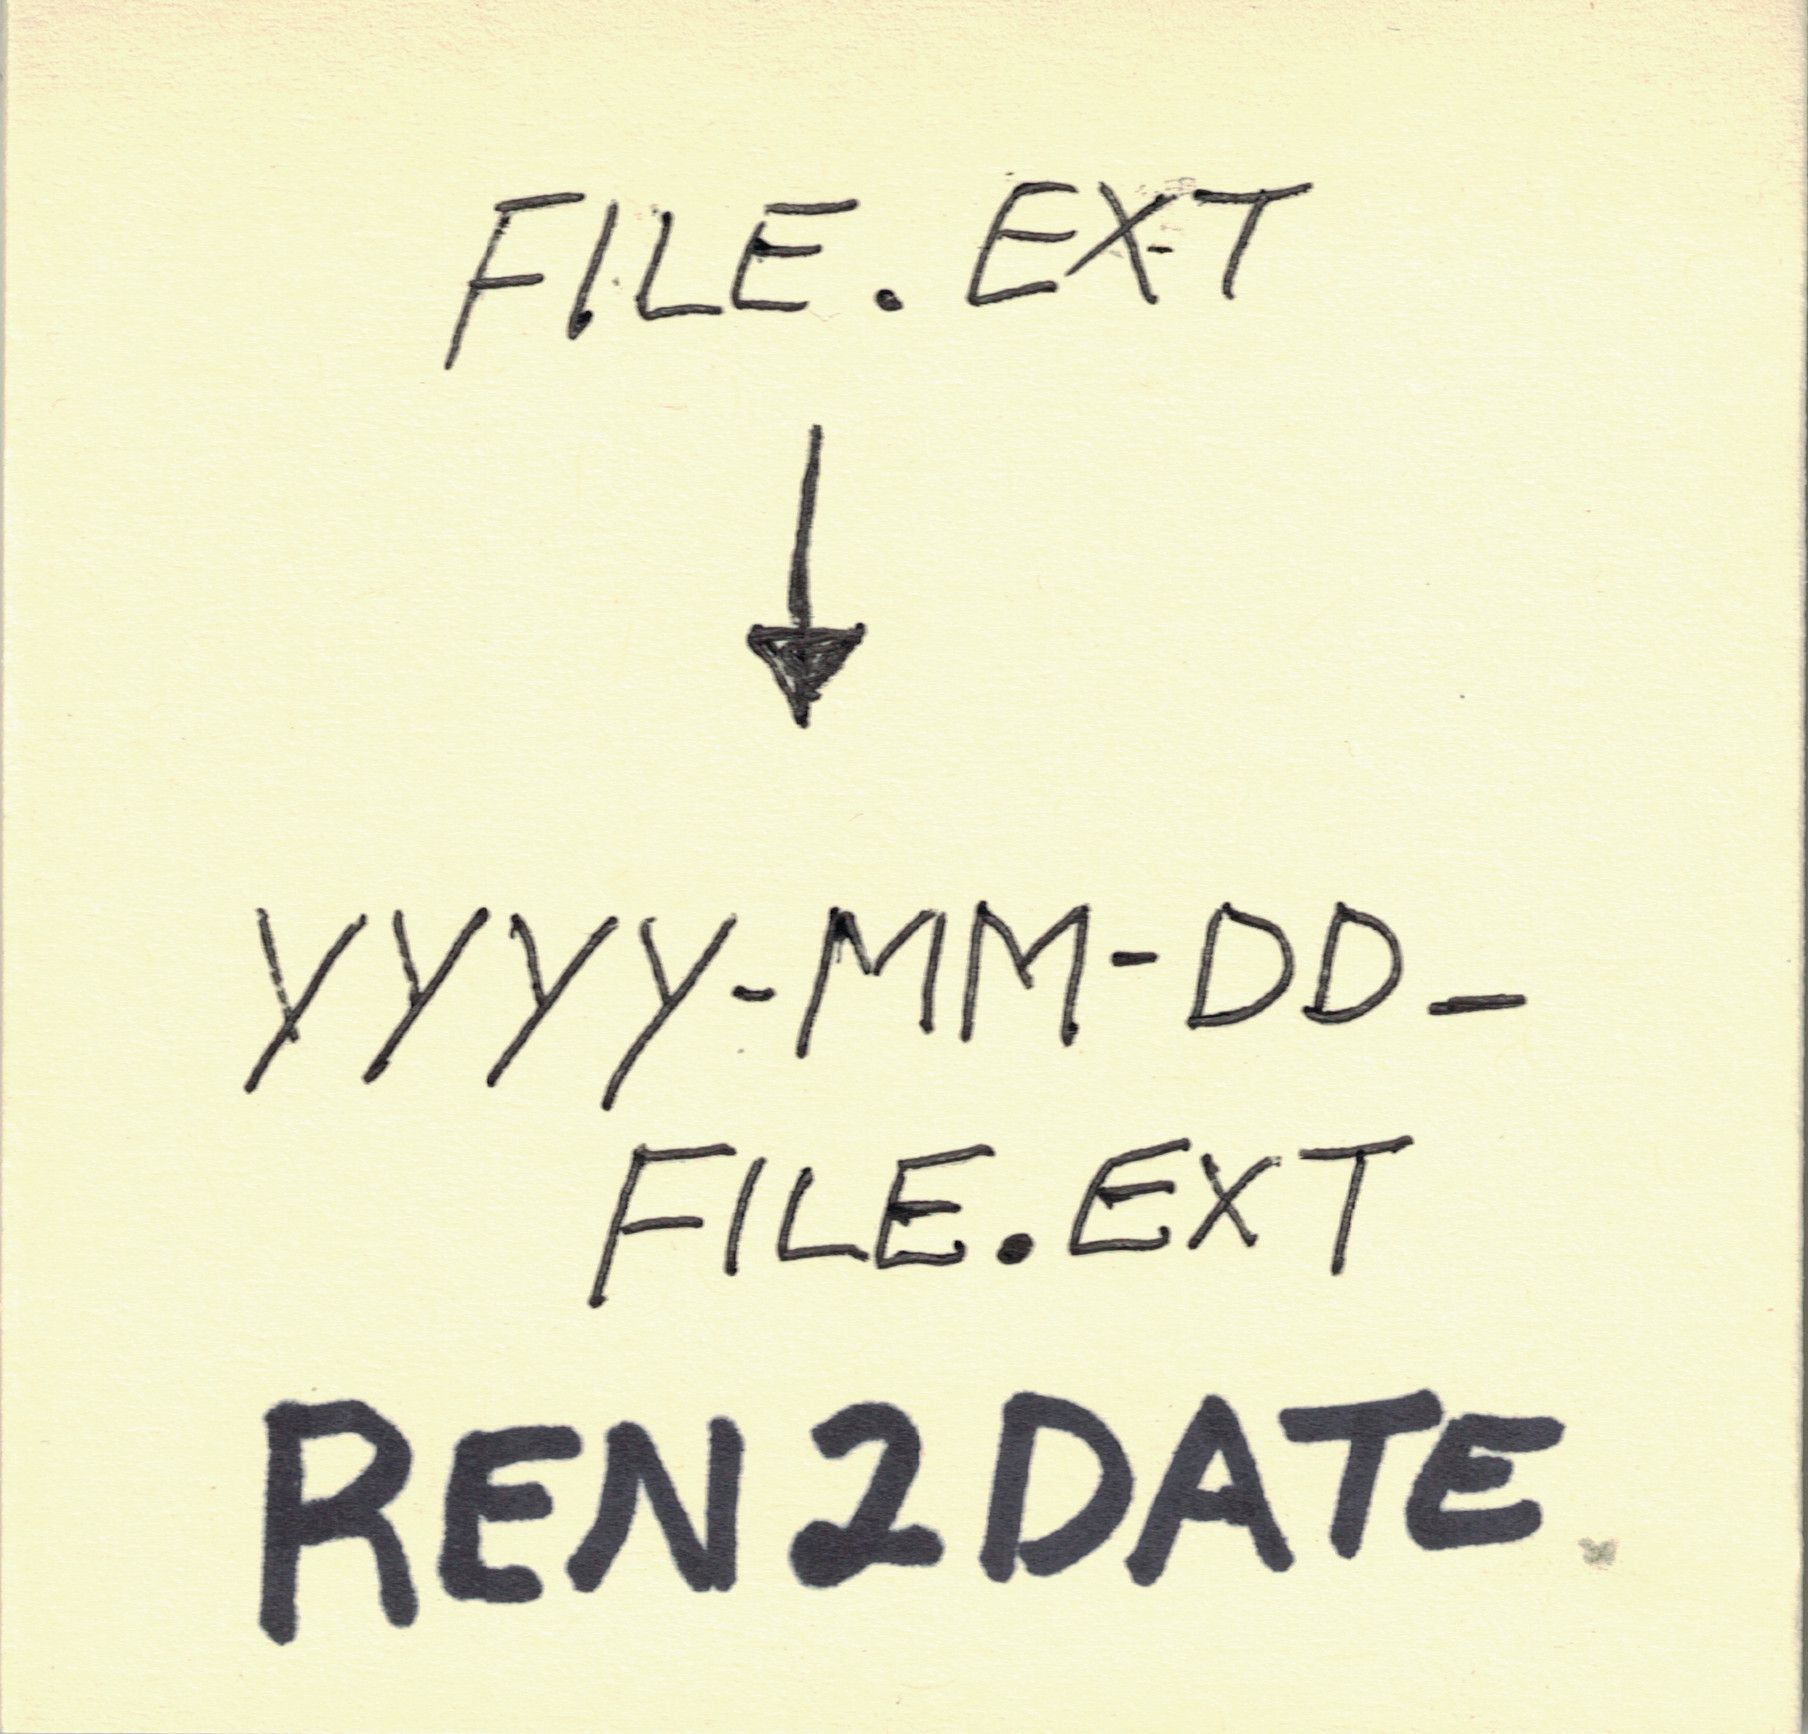 FILE.EXT
YYYY-MM-DD_
FILE.EXT
REN2DATE